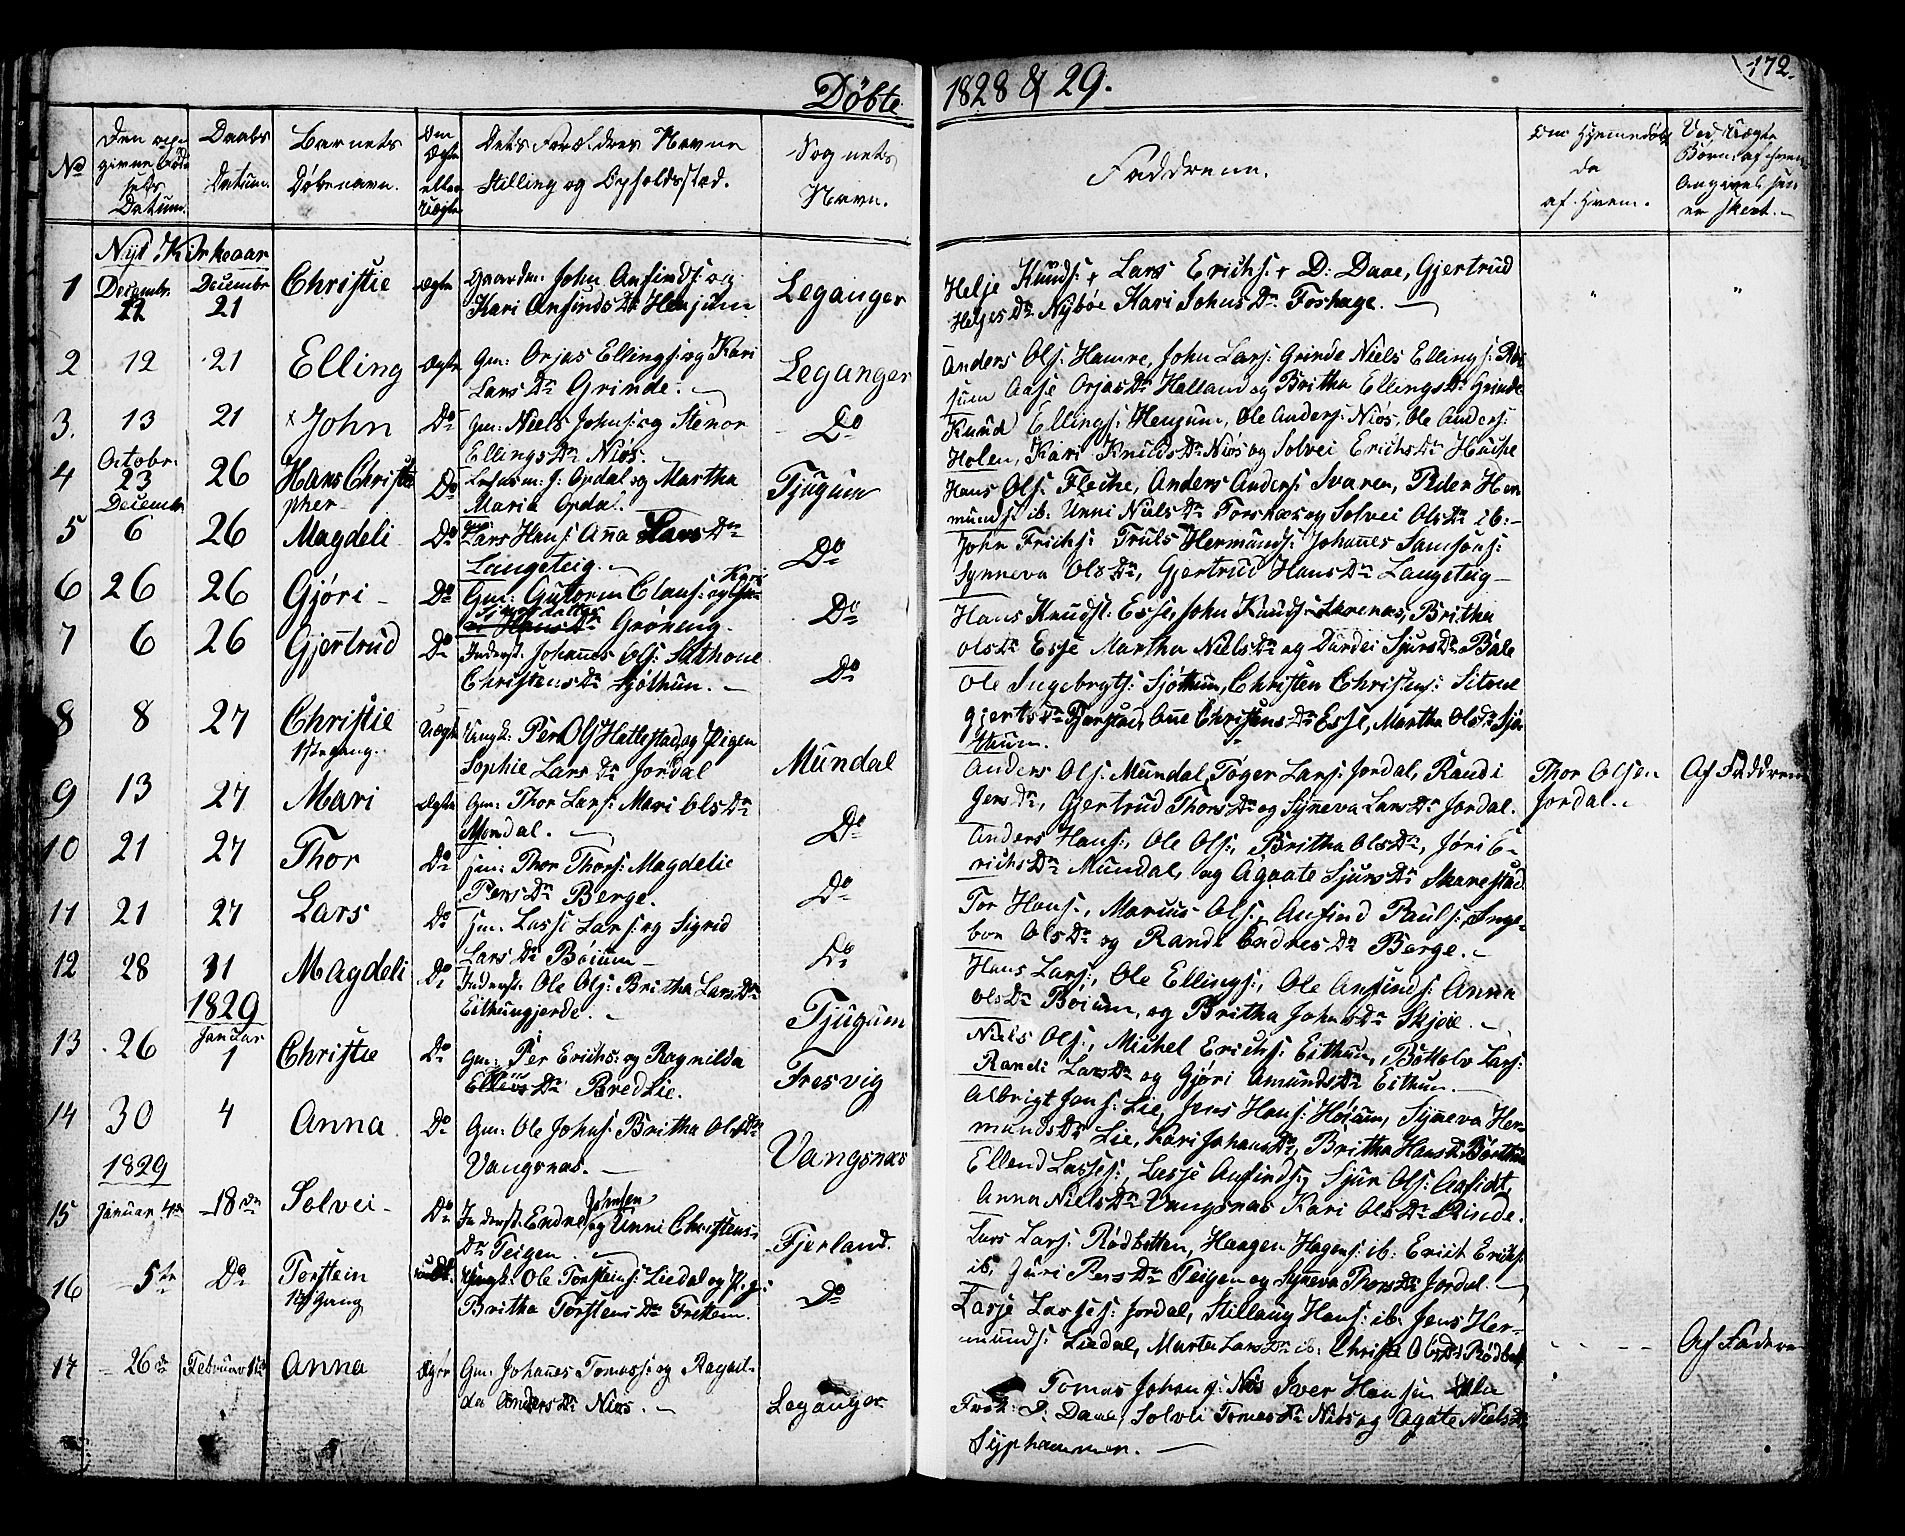 172.
Døbte 1828 & 29.
No
Den opgivne Fødsels Datum.
Daabs Datum.
Barnets Døbenavn.
Om Ægte eller Uægte
Dets Forældres Navne Stilling og Opholdsstæd.
Sognets Navn.
Faddrene.
Om Hjemmedøbt da af Hvem.
Ved Uægte Børn, af hvem Angivelsen er skeet.
Nyt Kirkeaar
1 Decembr. Decembr 21 Christie ægte Gaardm: John Anfinds: og
Kari Anfinds Dr Henjum Leganger
Helje Knuds: + Lars Erichs: + D: Daae, Gjertrud
Heljes Dr Nybøe Kari Johns Dr Foshage.
2 12 21 Elling ægte Gm: Orjas Ellings: og Kari
Lars Dr Grinde. Leganger
Anders Ols: Hamre, John Lars: Grinde Niels Ellings:
Aase Orjas Dr Helland og Britha Ellings Dr Grinde
3. 13 21 × John Do Gm: Niels Johns: og Stenor
Ellings Dr Niøs. Do
Knud Ellings: Henjum, Ole Anders: Niøs, Ole Anders:
Holen, Kari Knuds Dr Niøs og Solvei Erichs Dr
4 Octobr. 23 26 Hans Christopher Do Opdal og Martha
Maria Opdal. Tjugum
Hans Ols: Anders Anders: Svaren, Peder Hermunds: ib. Unni Niels Dr og Solvei Ols Dr ib:
5 Decembr 6 26 Magdeli Do Gm: Lars Hans: Anna Lars Dr
Langeteig. Do
John Erichs: Truls Hermunds: Johanes Samsons:
Synneva Ols Dr, Gjertrud Hans Dr Langeteig
6 26 26 Gjøri Do Gm: Gutorm Claus: og Kari
Grøneng. Do
Hans Knuds: Esse, John Knuds: Britha
Ols Dr Esse Martha Niels Dr og Durdei Sjurs Dr Bale
7 6 26 Gjertrud Do Inderst. Johanes Ols:
Christens Dr Sjøthun. Do
Ole Ingebrigts: Sjøthun, Christen Christens:
Gjerts Dr Ane Christens Dr Esse, Martha Ols Dr Sjøthun.
8 8 27 Christie 1ste gang. Uægte Ungk: Per Ols: Hattestad, og Pigen
Sophie Lars Dr Jordal Mundal
Anders Ols: Mundal, Toger Lars: Jordal, Randi
Jens Dr, Gjertrud Thors Dr og Syneva Lars Dr Jordal.
Thor Olsen Jordal. Af Faddrene
9 13 27 Mari ægte Gm: Thor Lars: Mari Ols Dr
Mundal. Do
Anders Hans:, Ole Ols:, Britha Ols Dr, Jøri Erichs Dr Mundal, og Agaate Sjurs Dr Skarestad
10 21 27 Thor Do Gm: Thor Thors: Magdelie
Pers Dr Berge. Do
Tor Hans:, Marius Ols:, Anfind Pauls: Ingebor Ols Dr og Randi Endres Dr Berge.
11 21 27 Lars Do Gm. Lasse Lars: og Sigrid
Lars Dr Bøium Do
Hans Lars:, Ole Ellings:, Ole Anfinds: Anna
Ols Dr Bøium, og Britha Johns Dr
12 28 31 Magdeli Do Inderst. Ole Ols: Britha Lars Dr
Eithungjerde. Tjugum
Niels Ols:, Michel Erichs: Eithun, Bottolv Lars:
Randi Lars Dr og Gjøri Amunds Dr Eithun.
1829
13 26 Januar 1 Christie Do Gm: Per Erichs: og Ragnilda
Dr BredLie. Fresvig
Albrigt Jons: Lie, Jens Hans: Høium, Syneva Hermunds Dr Lie, Kari Johans Dr, Britha Hans Dr
14 30 4 Anna Do Gm: Ole Johns: Britha Ols Dr
Vangsnæs. Vangsnæs
Ellend Lasses:, Lasse Anfinds:, Sjur Ols:
Anna Niels Dr Vangsnæs Kari Ols Dr Rinde.
1829
15 Januar 4de 18 de Solvei Do Inderst. Endre Johnsen og Unni Christens
Dr Teigen Fjerland.
Lars Lars: Rødbotten, Haagen Hagens: ib: Erich Erichs:
ib, Juri Pers Dr Teigen og Syneva Thors Dr Jordal.
16 5te Do Torstein 1ste Gang Ungk: Ole Torsteins: Liedal og Pige:
Britha Torstens Dr Do
Lasse Lasses: Jordal, Stillaug Hans: ib. Jens Hermunds: Liedal, Marta Lars Dr ib: Christie
Af Fadren
17 26 Februar Anna Ægte Gm: Johanes Tomass: og Ragnilda Anders Dr Niøs. Leganger
Tomas Johans: Niøs Iver Hansen
D: Daae, Solvei Tomas Dr Niøs og Agate Niels Dr
Sjyphammer.